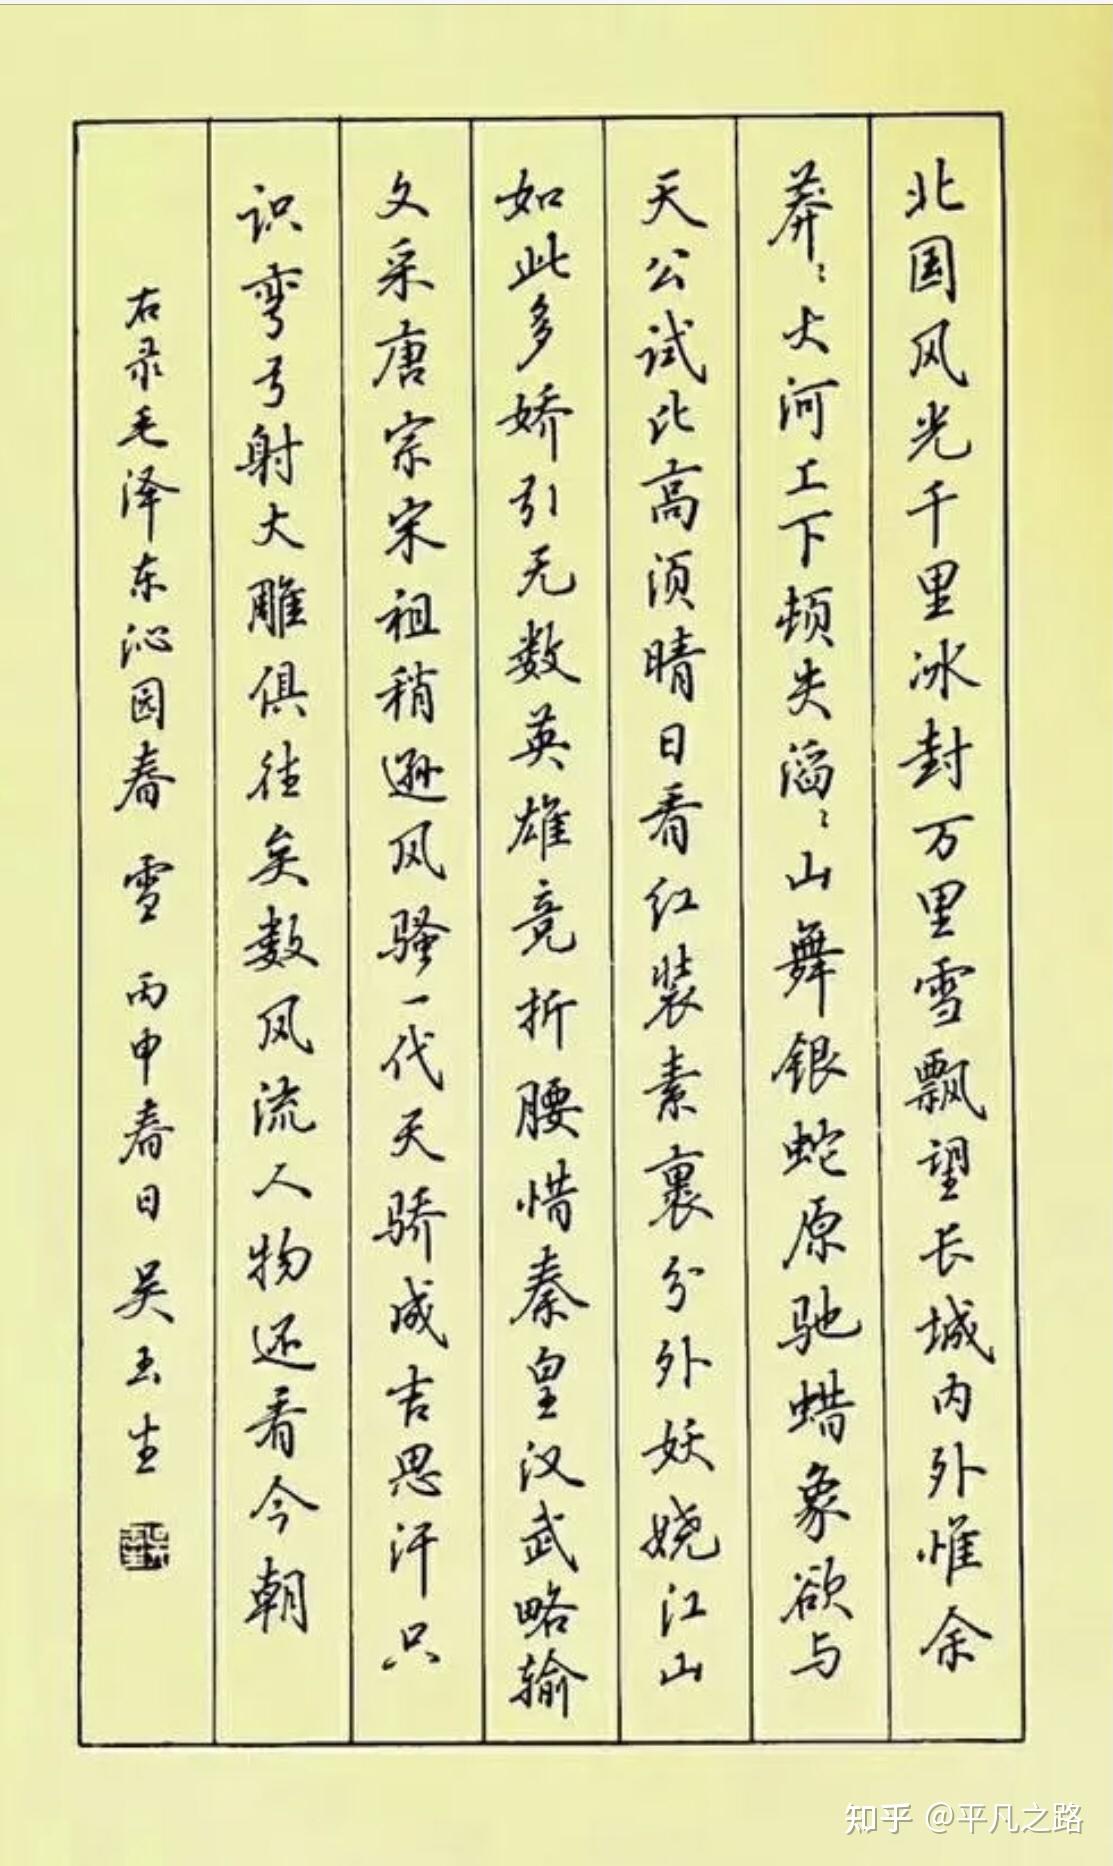 北国风光千里冰封万里雪飘望长城内外惟余
莽〻大河上下顿失滔〻山舞银蛇原驰蜡象欲与
天公试比高须晴日看红装素裹分外妖娆江山
如此多娇引无数英雄竞折腰惜秦皇汉武略输
文采唐宗宋祖稍逊风骚一代天骄成吉思汗只
识弯弓射大雕俱往矣数风流人物还看今朝
右录毛泽东沁园春 雪 丙申春日 吴玉生
知乎 @平凡之路